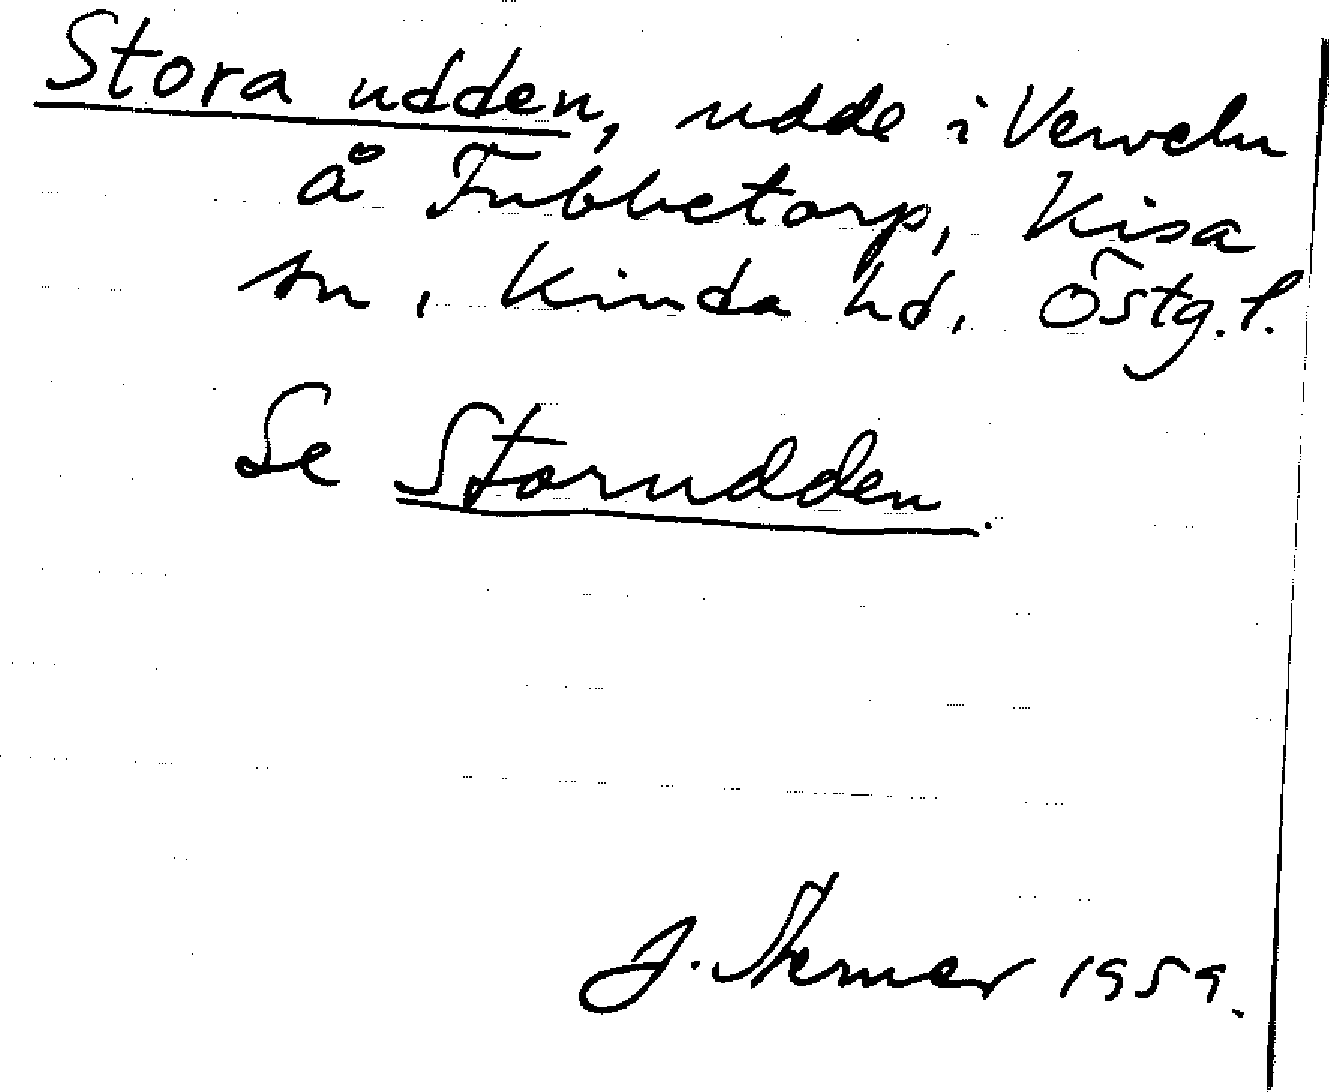 Stora udden, udde i Verveln
å Fubbetorp, Kisa
sn, Kinda hd, Östg. l.
Se Storudden.
J. Sterner 1959.